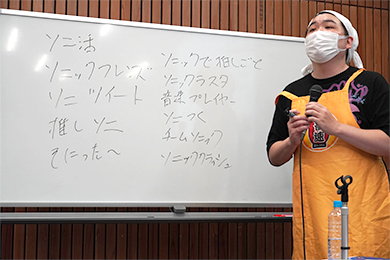 ソニ活
ソニックフレンズ
ソニツイート
推しソニ
そにったへ
ソニックで推しごと
ソニックラスタ
音速プレイヤー
ソニつく
チームソニック
ソニッククラッシュ